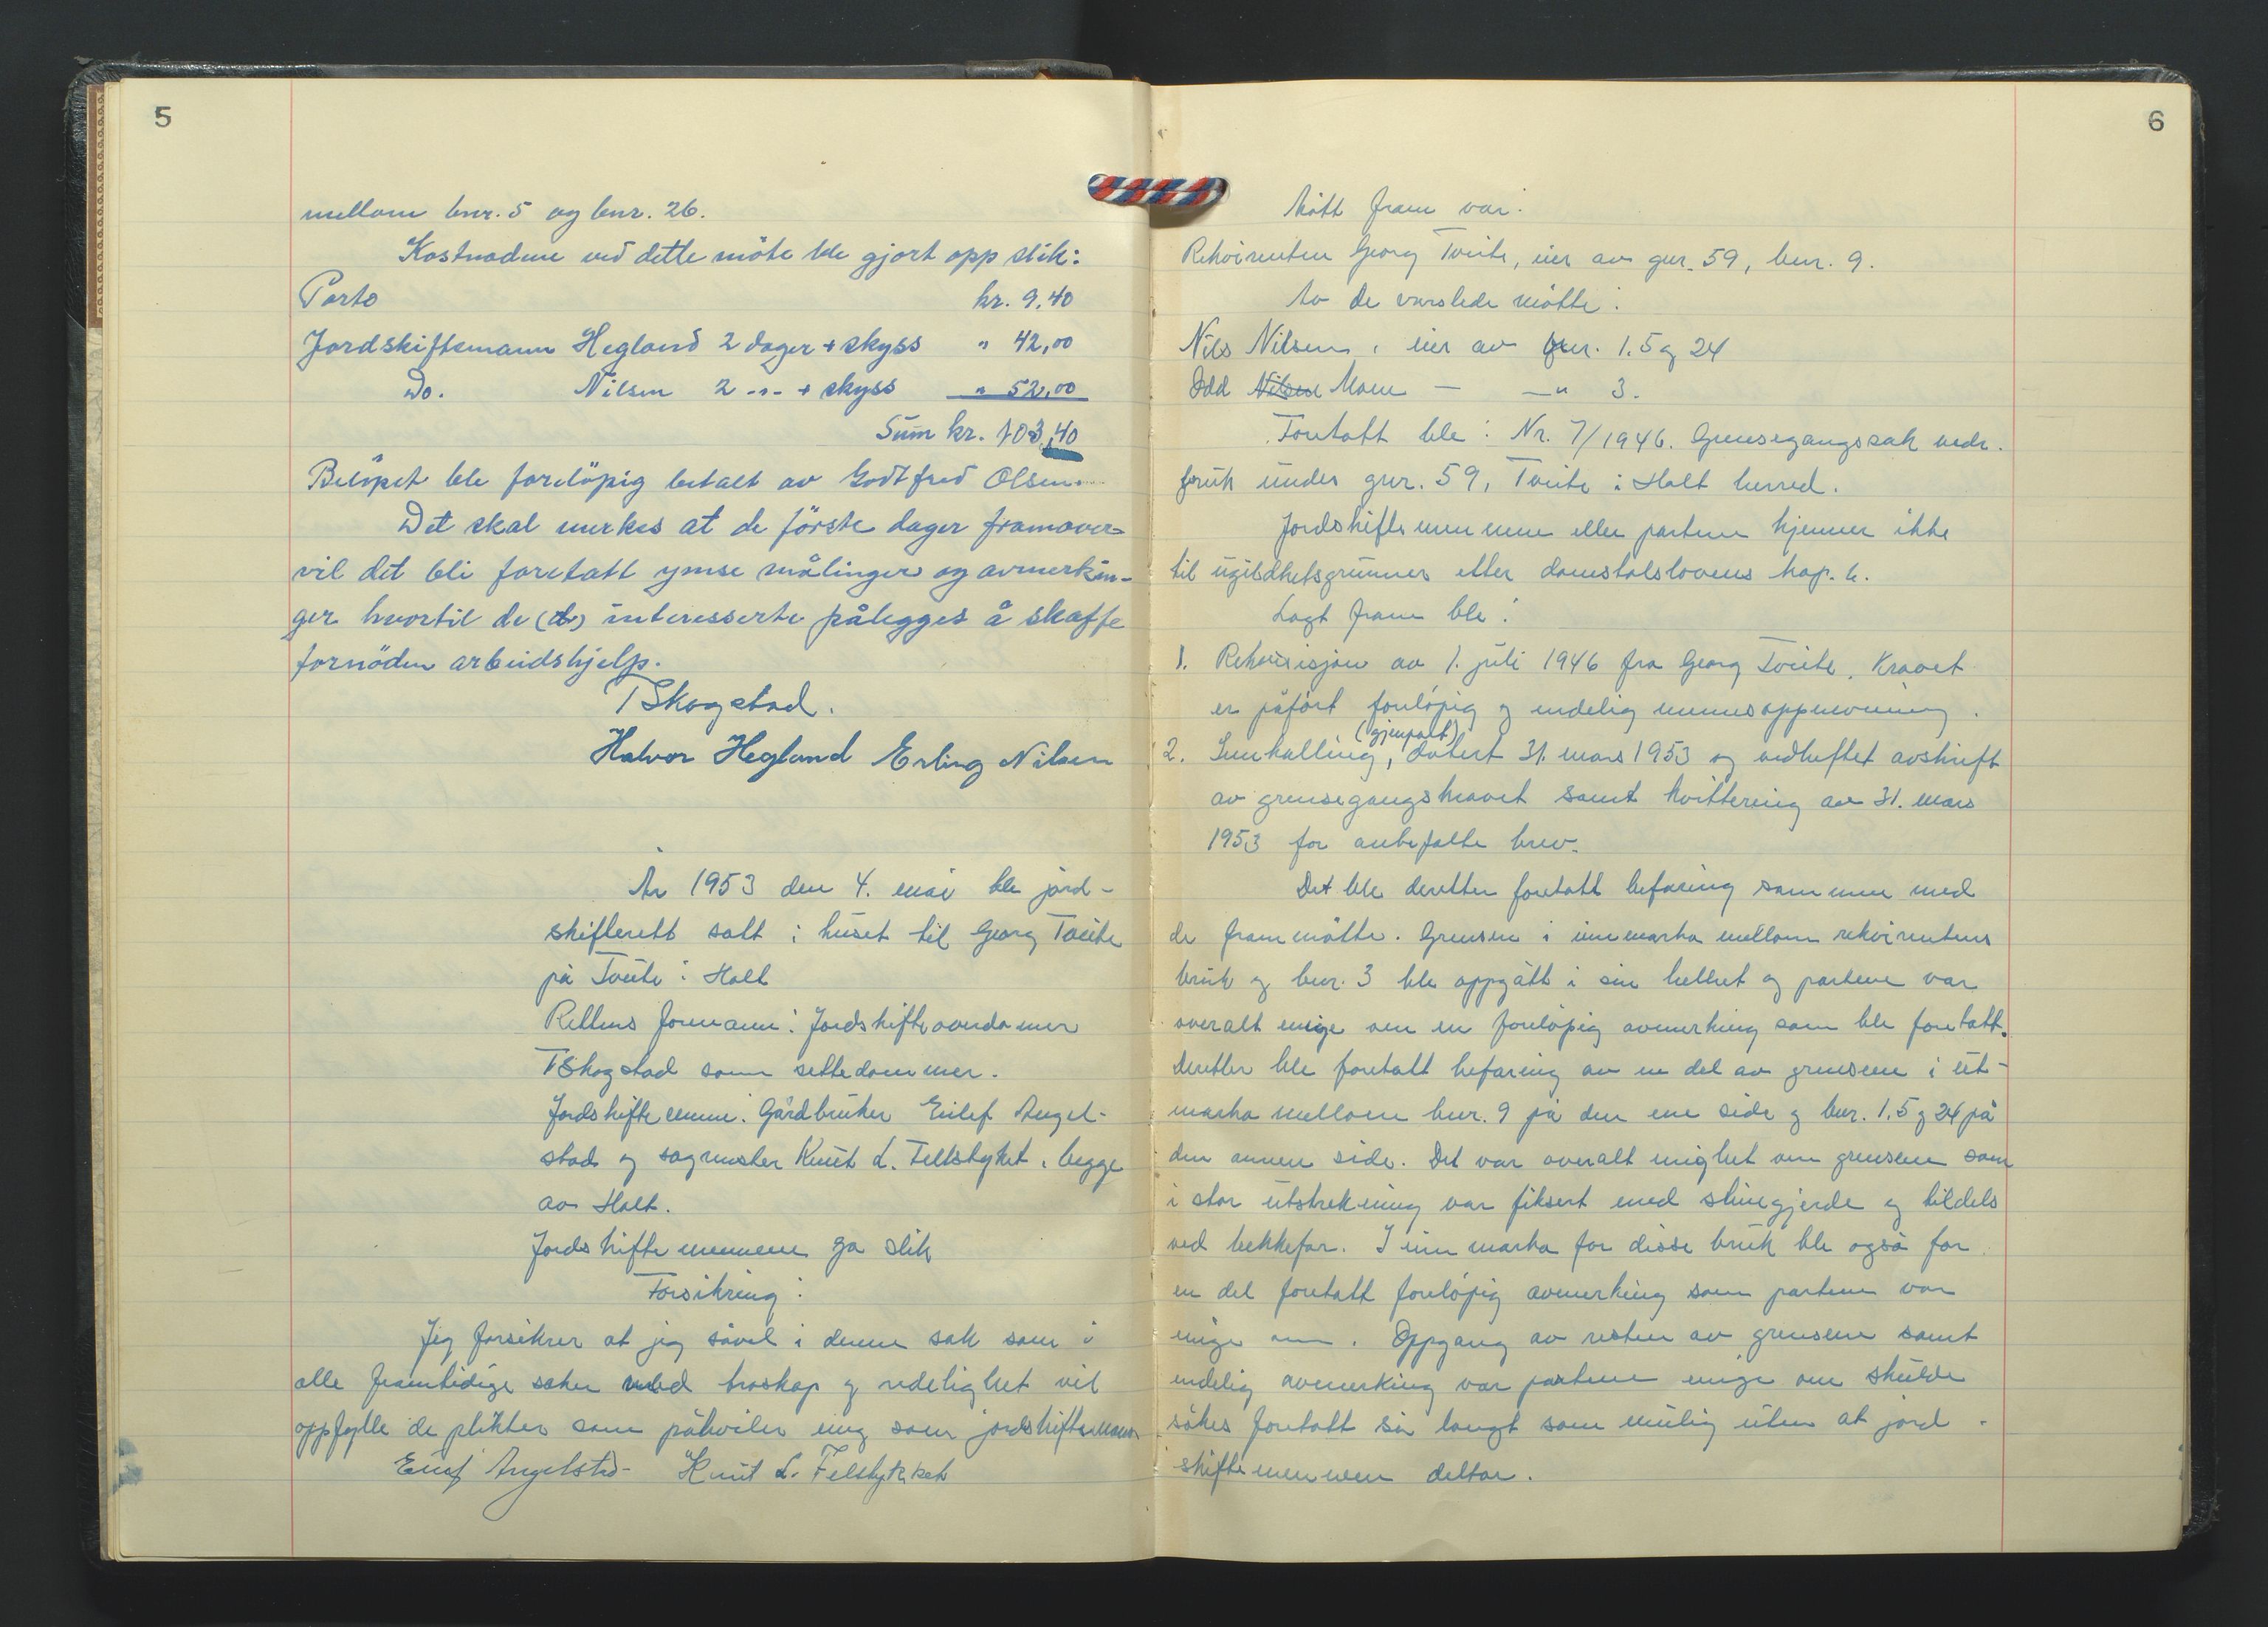 5
mellom bnr. 5 og bnr. 26.
Kostnadene ved dette möte ble gjort opp slik:
Porto kr. 9,40
Jordskiftemann Hegland 2 dager + skyss " 42,00
Do. Nilsen 2 -"- + skyss " 52,00
Sum kr. 103,40
Belöpet ble forelöpig betalt av Godtfred Olsen.
Det skal merkes at de förste dager framover
vil det bli foretatt ymse målinger og avmerkin-
ger hvortil de (d) interesserte pålegges å skaffe
fornöden arbeidshjelp.
T Skogstad.
Halvor Hegland Erling Nilsen
År 1953 den 4. mai ble jord-
skifterett satt i huset til Georg Tveite
på Tveite i Holt
Rettens formann: Jordskifteoverdommer
T Skogstad som settedommer.
Jordskiftemenn: Gårdbruker Eilef Angel-
stad og sagmester Knut L. Fellstykket, begge
av Holt.
Jordskiftemennene ga slik
Forsikring:
Jeg forsikrer at jeg såvel i denne sak som i
alle framtidige saker med troskap og redelighet vil
oppfylle de plikter som påhviler meg som jordskiftemann
Eilef Angelstad Knut L. Felstykket
6
Mött fram var:
Rekvirenten Georg Tveite, eier av gnr. 59, bnr. 9.
Av de varslede mötte:
Nils Nilsen, eier av bnr. 1.5 og 24
Odd Nilsen Moen — —" 3.
Foretatt ble: Nr. 7/1946. Grensegangssak vedr.
bruk under gnr. 59, Tveite i Holt herred.
Jordskiftemennene eller partene kjenner ikke
til ugildhetsgrunner etter domstolslovens kap. 6.
Lagt fram ble:
1. Rekvisisjon av 1. juli 1946 fra Georg Tveite. Kravet
er påfört forelöpig og endelig mennsoppnevning.
(gjenpart)
2. Innkalling, datert 31. mars 1953 og vedheftet avskrift
av grensegangskravet samt kvittering av 31. mars
1953 for anbefalte brev.
Det ble deretter foretatt befaring sammen med
de frammötte. Grensen i innmarka mellom rekvirentens
bruk og bnr. 3 ble oppgått i sin helhet og partene var
overalt enige om en forelöpig avmerking som ble foretatt.
Deretter ble foretatt befaring av en del av grensene i ut-
marka mellom bnr. 9 på den ene side og bnr. 1.5 og 24 på
den annen side. Det var overalt enighet om grensene som
i stor utstrekning var fiksert med steingjerde og tildels
ved bekkefar. I innmarka for disse bruk ble også for
en del foretatt forelöpig avmerking som partene var
enige om. Oppgang av resten av grensene samt
endelig avmerking var partene enige om skulde
sökes foretatt så langt som mulig uten at jord-
skiftemennene deltar.